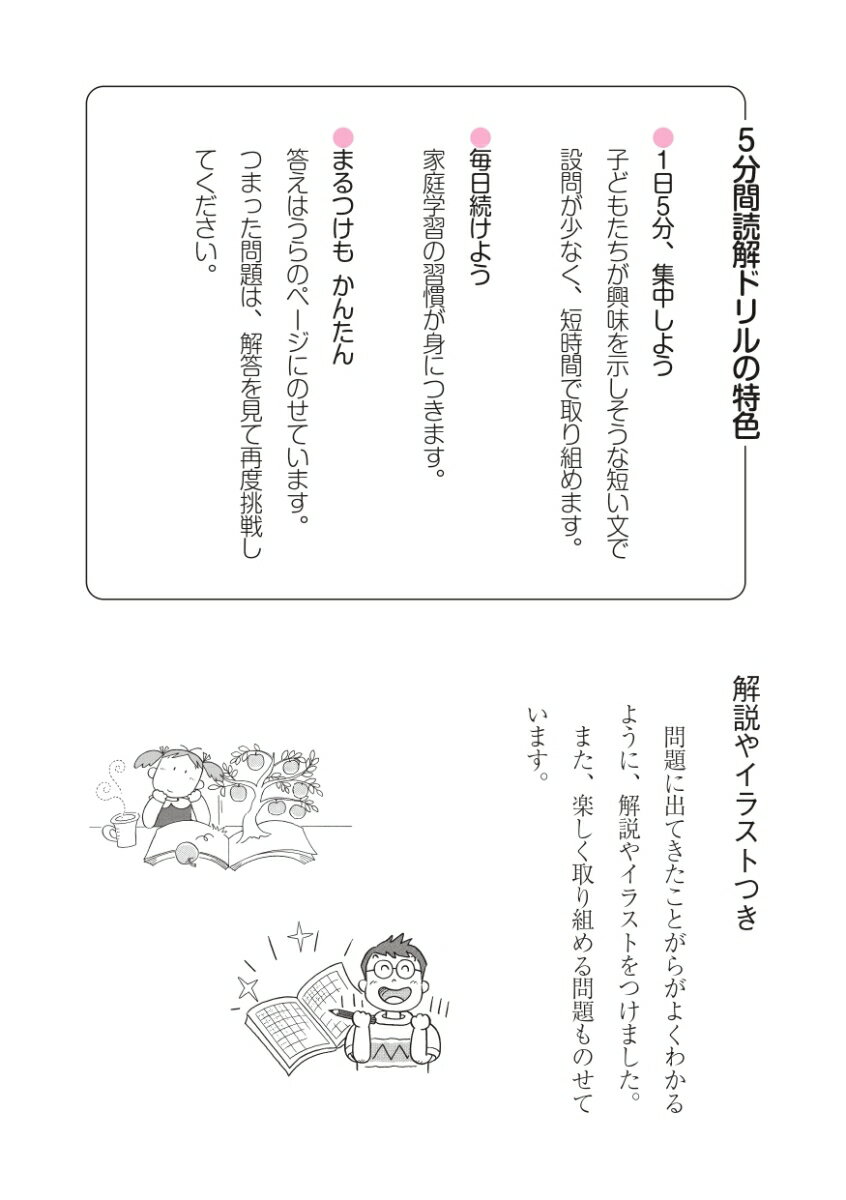 5分間読解ドリルの特色
1日5分、集中しよう
子どもたちが興味を示しそうな短い文で
設問が少なく、短時間で取り組めます。
毎日続けよう
家庭学習の習慣が身につきます。
まるつけも かんたん
答えはうらのページにのせています。
つまった問題は、解答を見て再度挑戦し
てください。
解説やイラストつき
問題に出てきたことがらがよくわかる
ように、解説やイラストをつけました。
また、楽しく取り組める問題ものせて
います。